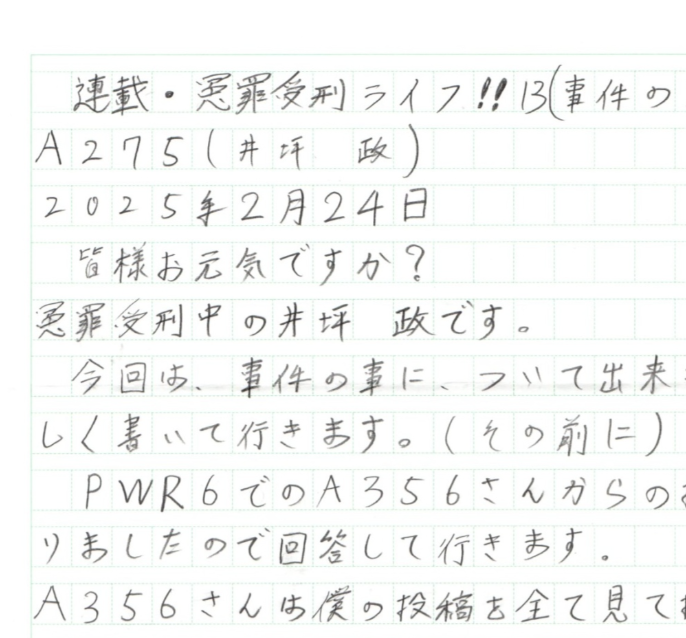 連載・冤罪受刑ライフ!!13(事件の
A275(井坪 政)
2025年2月24日
皆様お元気ですか?
冤罪受刑中の井坪 政です。
今回は、事件の事に、ついて出来
しく書いて行きます。(その前に)
PWR6でのA356さんからのお
りましたので回答して行きます。
A356さんは僕の投稿を全て見て